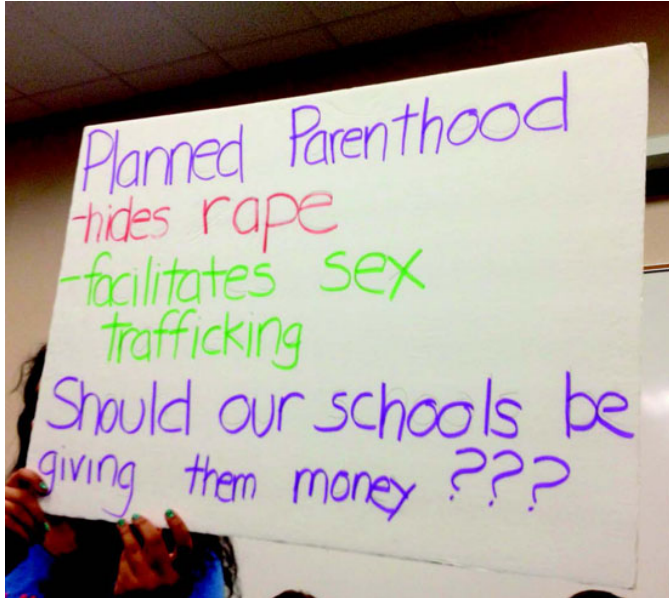 Planned Parenthood
-hides rape
-facilitates sex
trafficking
Should our schools be
giving them money ???